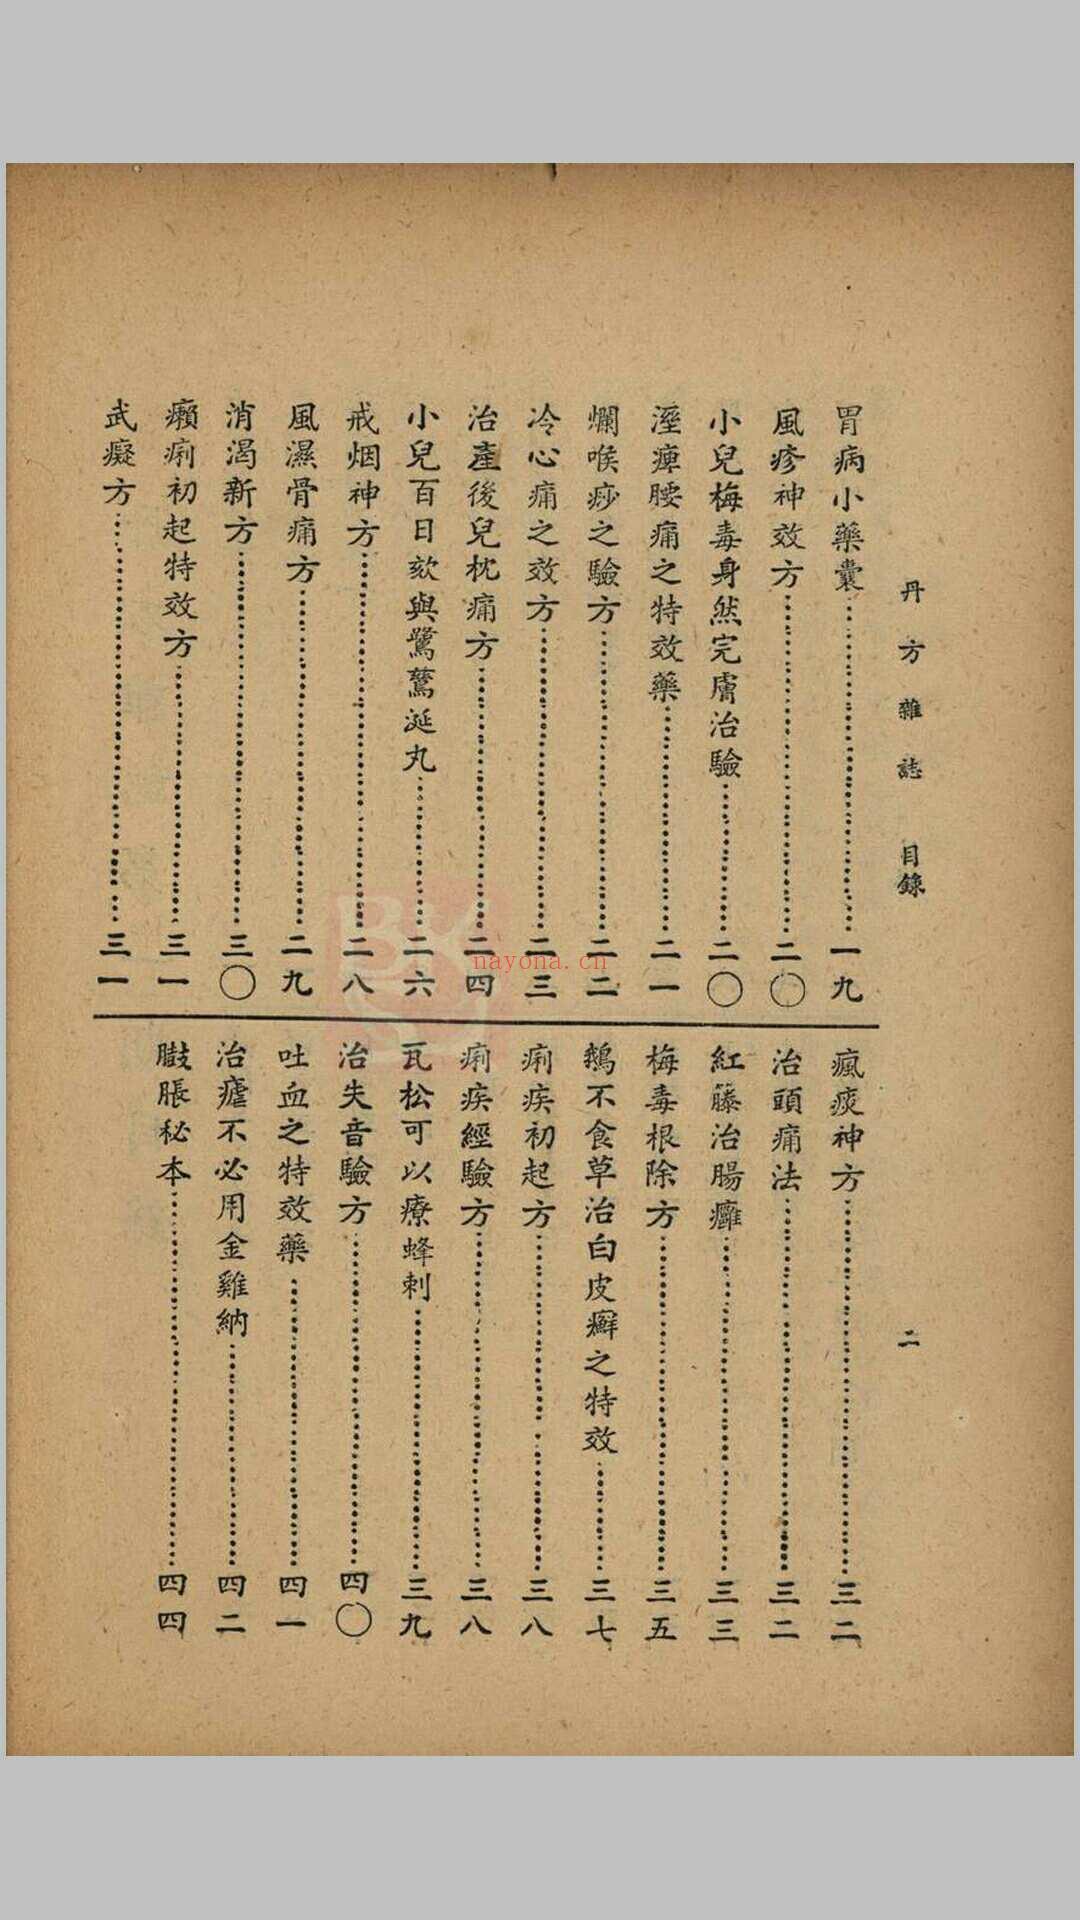 丹方雜誌 目錄 二
胃病小藥囊⋯⋯一九
風疹神效方⋯⋯二〇
小兒梅毒身然完膚治驗⋯⋯二〇
溼痺腰痛之特效藥⋯⋯二一
爛喉痧之驗方⋯⋯二二
冷心痛之效方⋯⋯二三
治產後兒枕痛方⋯⋯二四
小兒百日欬與鷺鶿涎丸⋯⋯二六
戒烟神方⋯⋯二八
風濕骨痛方⋯⋯二九
消渴新方⋯⋯三〇
癩痢初起特效方⋯⋯三一
武癡方⋯⋯三一
瘋痰神方⋯⋯三二
治頭痛法⋯⋯三二
紅籐治腸癰⋯⋯三三
梅毒根除方⋯⋯三五
鵝不食草治白皮癬之特效⋯⋯三七
痢疾初起方⋯⋯三八
痢疾經驗方⋯⋯三八
瓦松可以療蜂刺⋯⋯三九
治失音驗方⋯⋯四〇
吐血之特效藥⋯⋯四一
治瘧不必用金雞納⋯⋯四二
臌脹秘本⋯⋯四四
nayona.cn